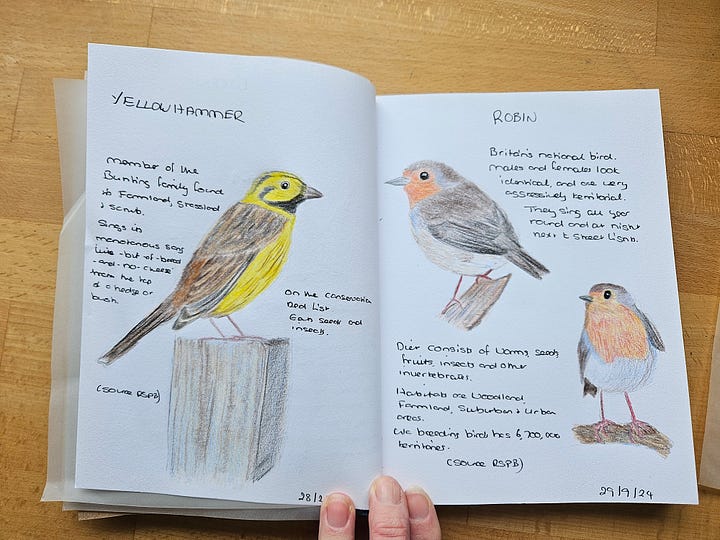 YELLOWHAMMER
member of the
Bunting family found
to Farmland, grassland
& scrub.
Sings in
monotonous song
-bit-of-bread
-and-no-cheese'
from the top
of a hedge or
bush.
on the conservation
Red List.
Eats seeds and
insects.
(Source RSPB)
28/
ROBIN
Britain's national bird.
males and females look
identical, and are very
aggressively territorial.
They sing all year
round and at night
next to street lights.
Diet consists of worms, seeds,
fruits, insects and other
invertebrates.
Habitats are woodland,
Farmland, Suburban & Urban
areas.
UK breeding birds has 6,700,000
territories.
(Source RSPB)
29/9/24